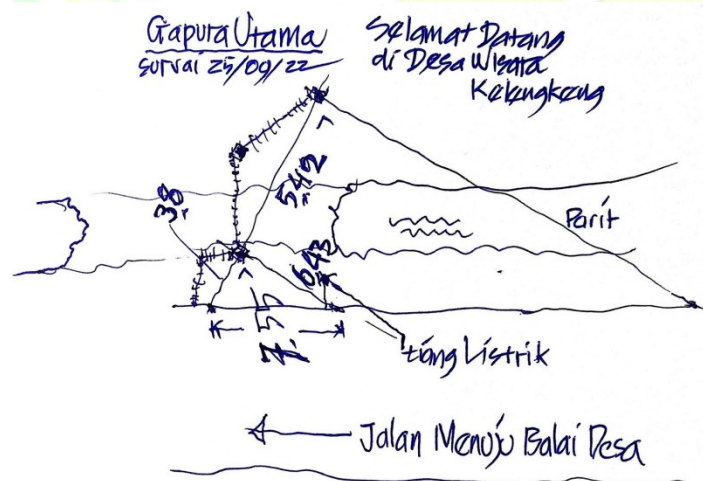 Gapura Utama
survai 25/09/22
Selamat Datang
di Desa Wisata
Kelengkeng
3,8
5,42
Parit
6,43
7,55
tiang Listrik
Jalan Menuju Balai Desa